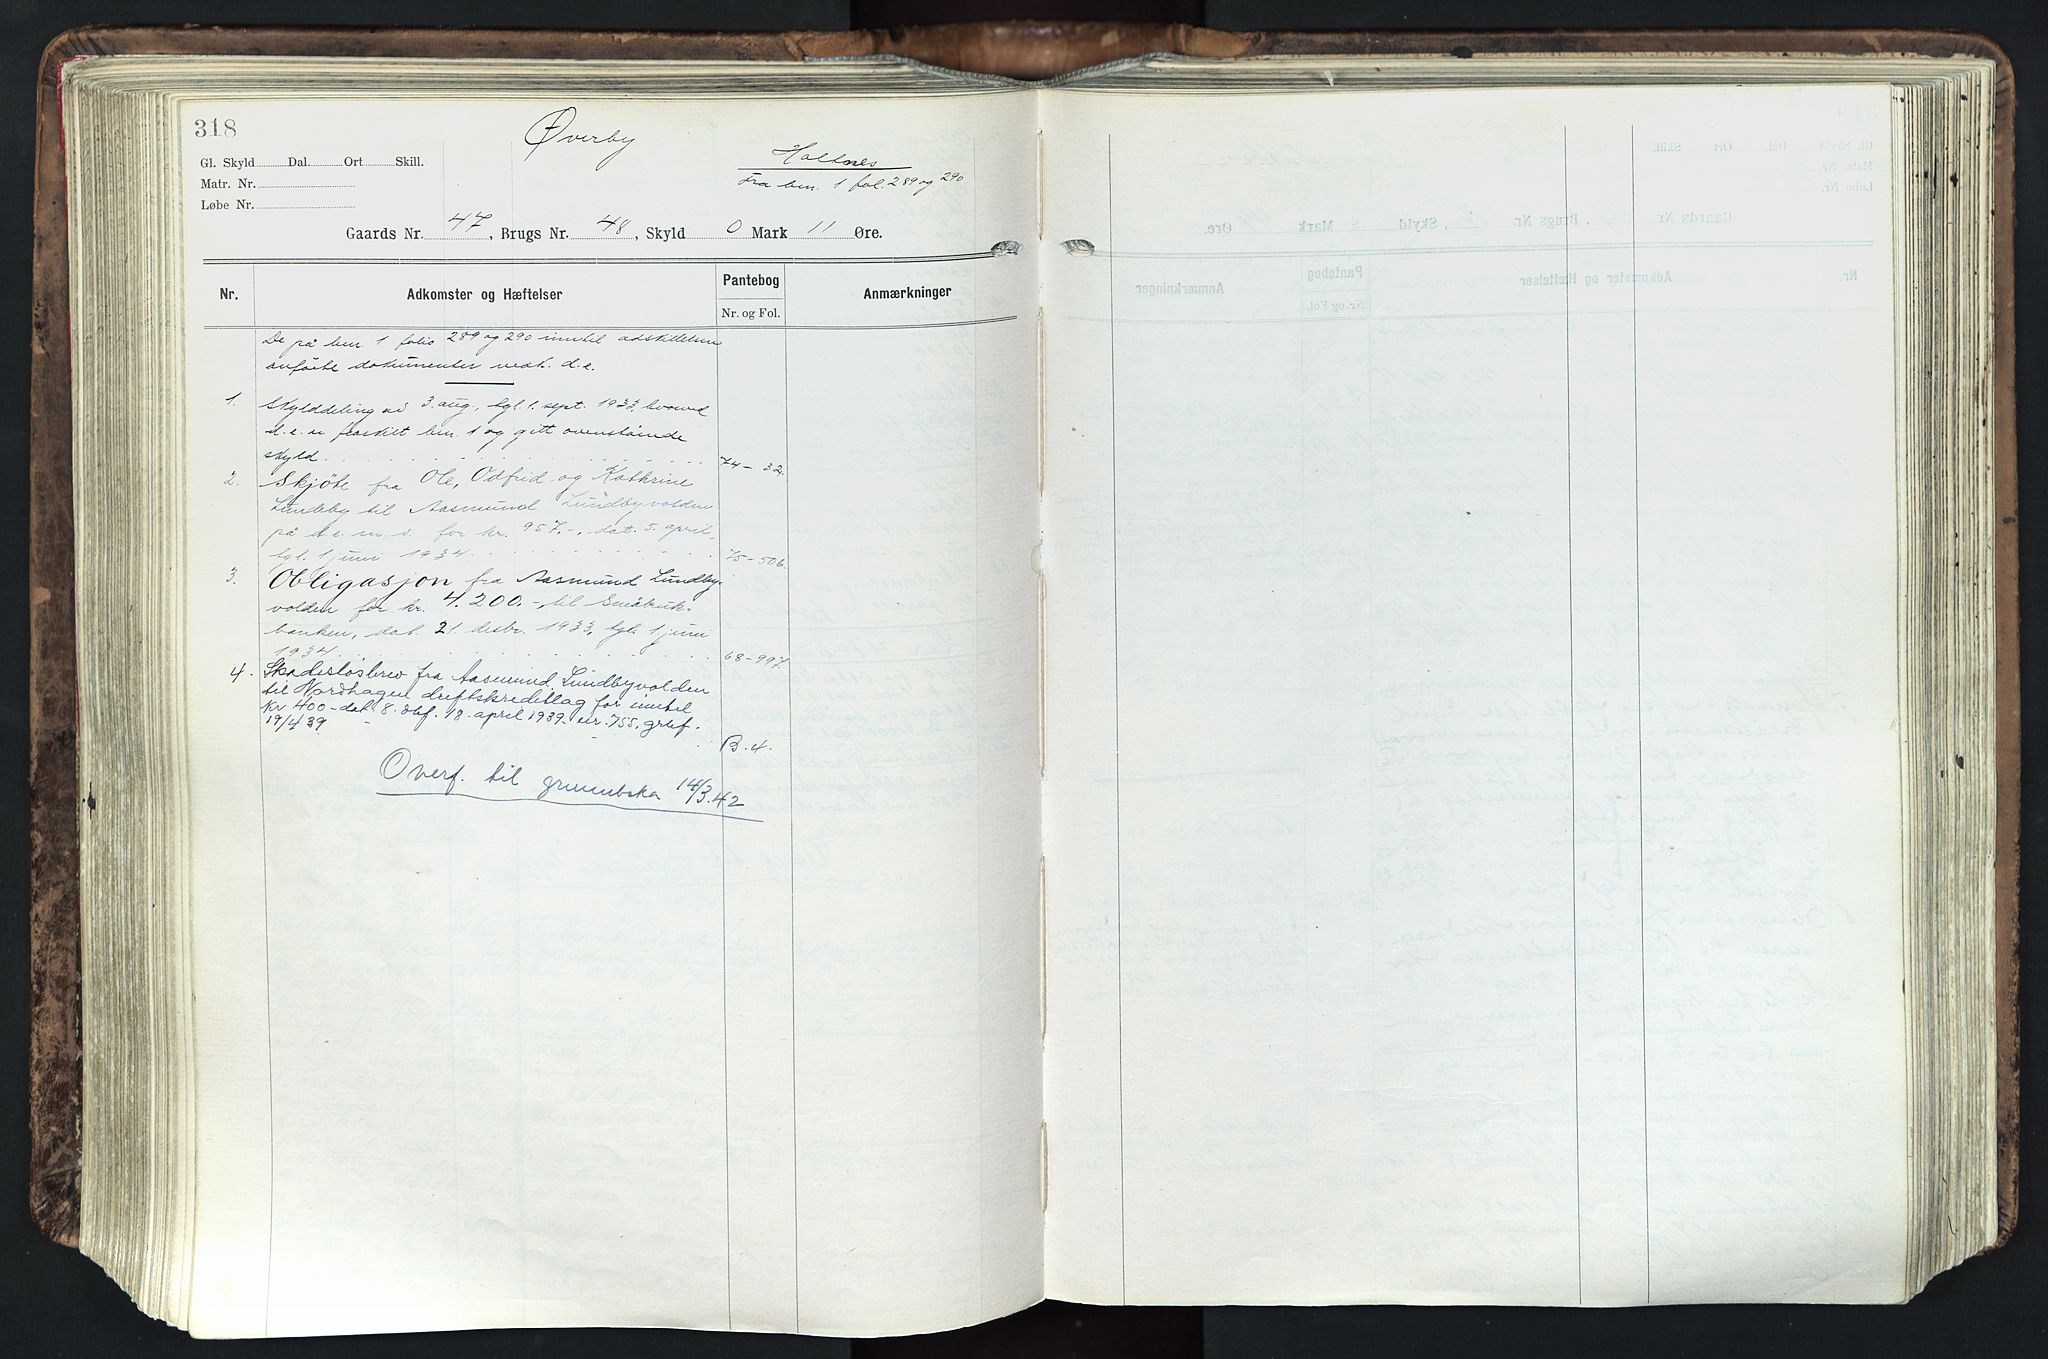 318
Øverby
Holtnes
Fra bnr. 1 fol. 289 og 290
Gl. Skyld Dal. Ort Skill.
Matr. Nr.
Løbe Nr.
Gaards Nr. 47, Brugs Nr. 48, Skyld 0 Mark 11 Øre.
Nr. Adkomster og Hæftelser Pantebog Nr. og Fol. Anmærkninger
De på bnr 1 folio 289 og 290 inntil adskillelsen
anførte dokumenter vedk. d.e.
1. Skylddeling av 3. aug., tgl. 1. sept. 1933, hvorved
d.e. er fraskilt bnr. 1 og gitt ovenstående
skyld 74 – 32.
2. Skjöte fra Ole, Odfrid og Kathrine
Lundeby til Aasmund Lundbyvolden
på d.e. m.v. for kr. 957.-, dat. 5. april,
tgl. 1 juni 1934 75 – 506.
3. Obligasjon fra Aasmund Lundby-
volden for kr. 4.200.-, til Småbruk-
banken, dat. 21. desbr. 1933, tgl. 1 juni
1934 68 – 997.
4. Skadesløsbrev fra Aasmund Lundbyvolden
til Nordhagen driftskredittlag for inntil
kr 400 – dat. 8. dbf. 18. april 1939. nr. 755, grbf.
19/4 39 B. 4.
Overf. til grunnboka 14/3.42